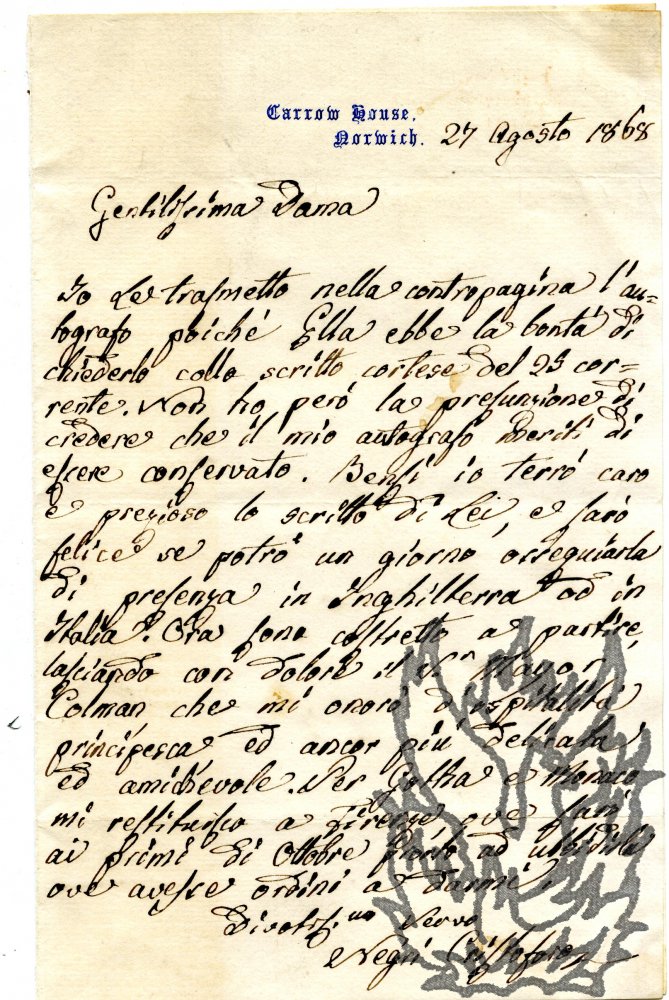 Carrow House.
Norwich. 27 Agosto 1868
Gentilissima Dama
Io Le trasmetto nella contropagina l'au=
tografo poiché Ella ebbe la bontà di
chiederlo collo scritto cortese del 25 cor=
rente. Non ho però la presunzione di
credere che il mio autografo meriti di
essere conservato. Bensì io terrò caro
e prezioso lo scritto di Lei, e sarò
felice se potrò un giorno ossequiarla
di presenza in Inghilterra od in
Italia. Ora sono costretto a partire,
lasciando con dolore il Sr. Mayor
Colman che mi onorò d'ospitalità
principesca ed ancor più delicata
ed amichevole. Per Gotha e Monaco
mi restituisco a Firenze ove sarò
ai primi di Ottobre pronto ad ubbidirla
ove avesse ordini a darmi.
Divotiss.mo Servo
Negri Cristoforo